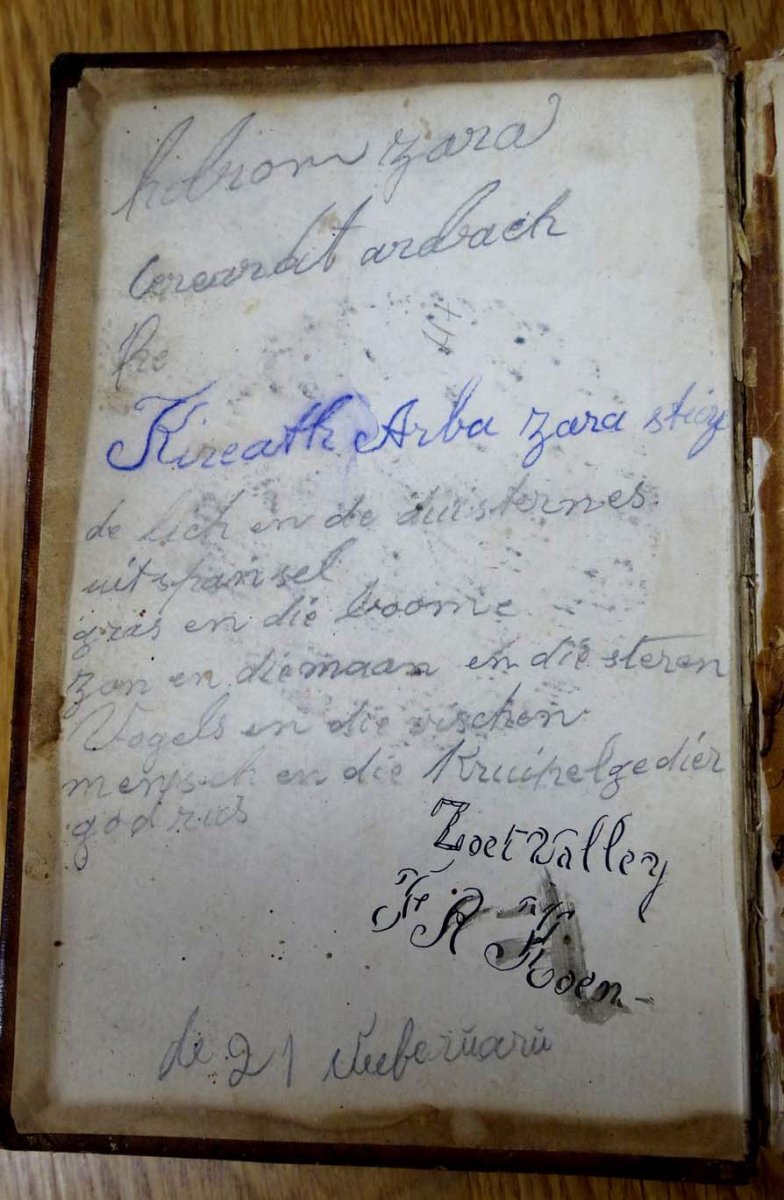 hebron zara
arbach
Ke
Kireath Arba zara
de lich en de duisternes
uitspansel
gras en die boome
zon en die maan en die steren
Vogels en die vischen
mensch en die Kruipelgedier
god rus
Zoet Valley
Koen
de 21 Feeberuaru